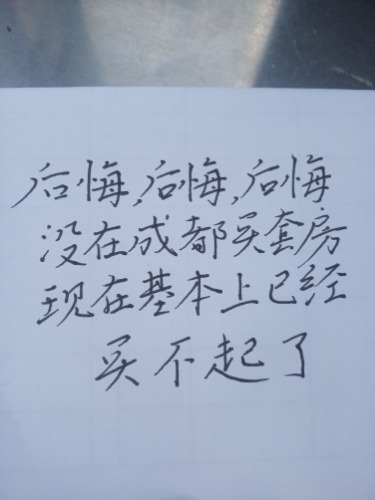 后悔,后悔,后悔
没在成都买套房
现在基本上已经
买不起了